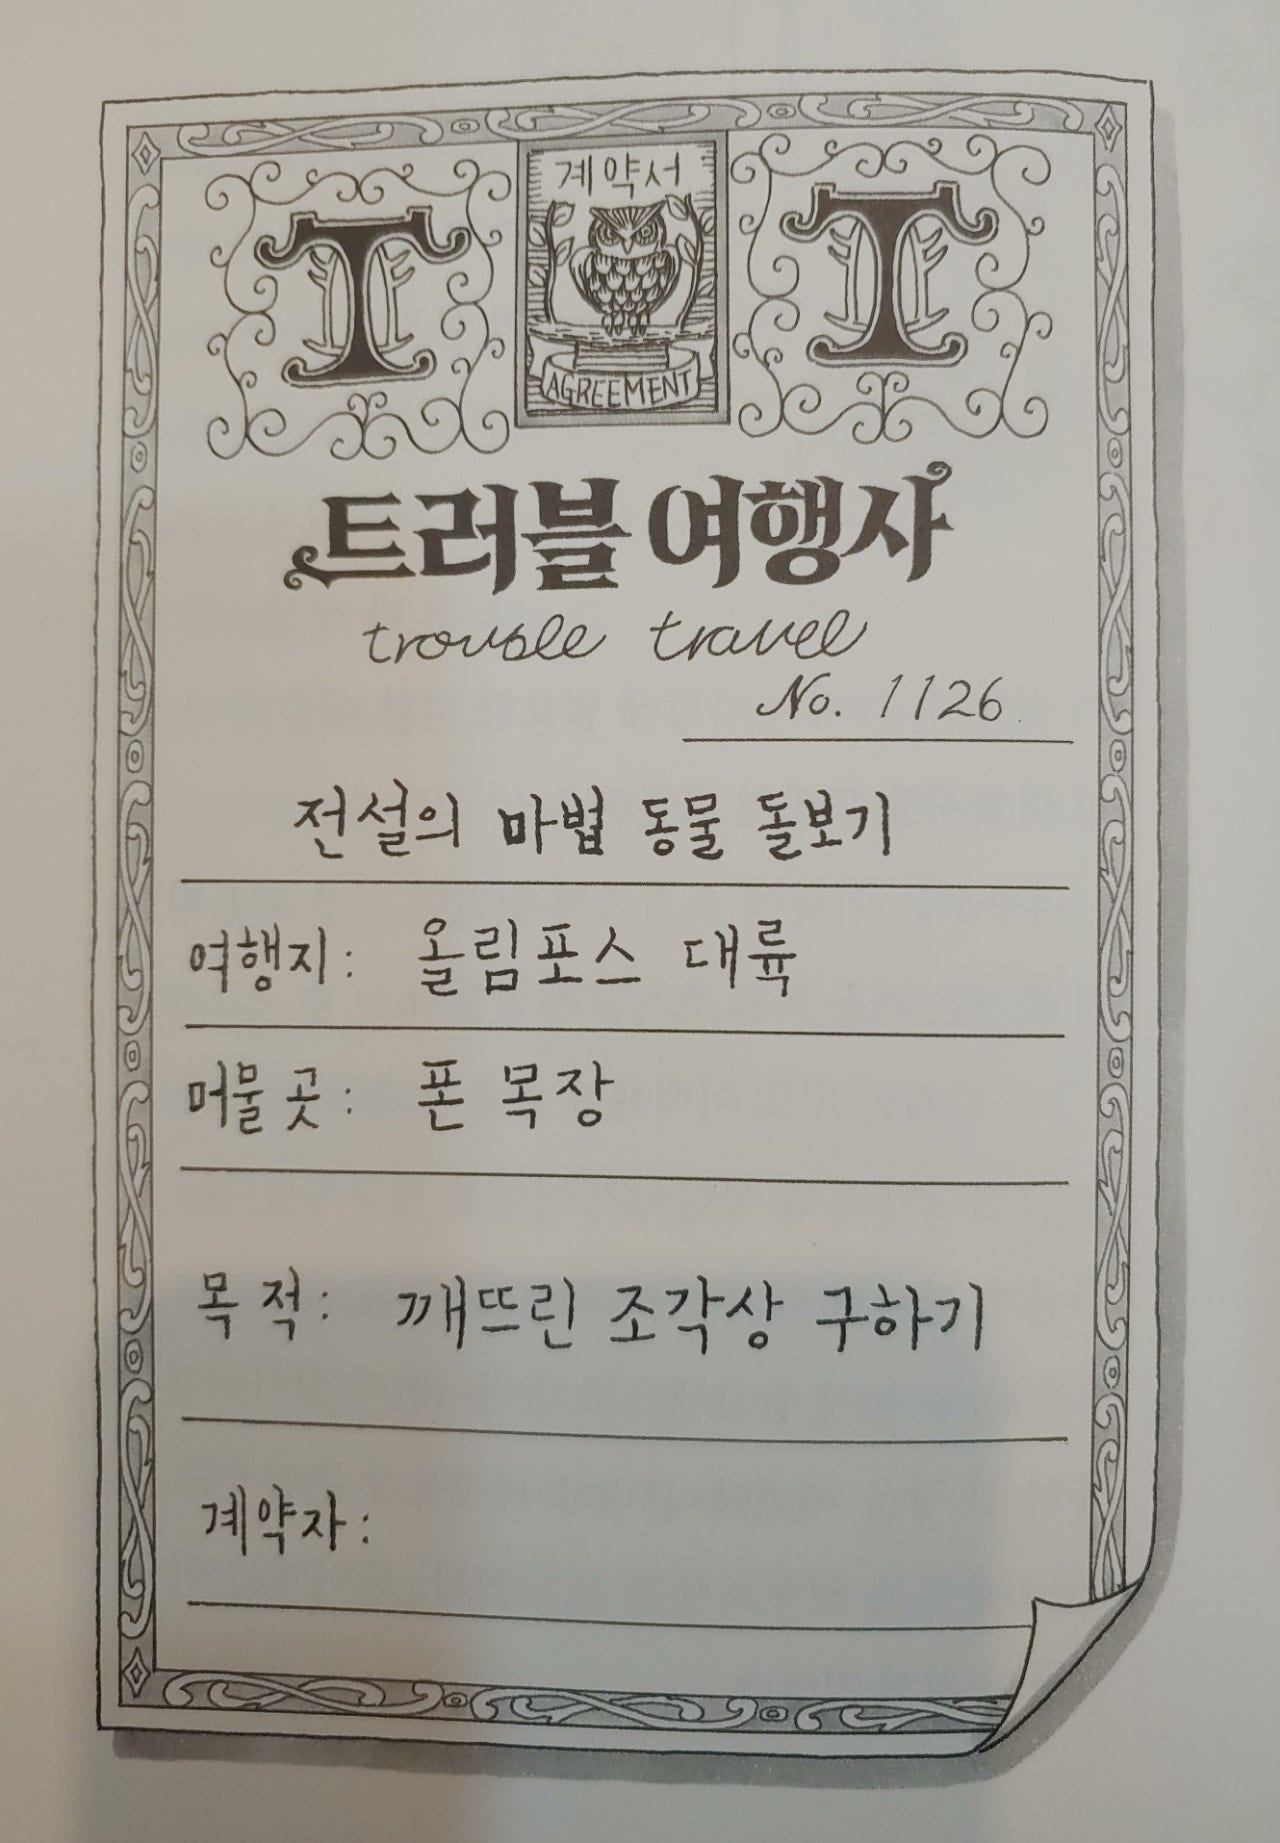 T 계약서 T
AGREEMENT
트러블 여행사
trouble travel
No. 1126
전설의 마법 동물 돌보기
여행지: 올림포스 대륙
머물 곳: 폰 목장
목적: 깨뜨린 조각상 구하기
계약자: